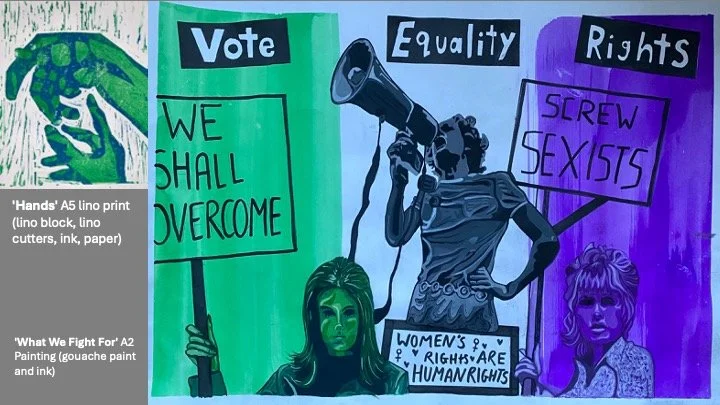 Vote
Equality
Rights
WE
SHALL
OVERCOME
SCREW
SEXISTS
WOMEN'S
RIGHTS ARE
HUMAN RIGHTS
'Hands' A5 lino print
(lino block, lino
cutters, ink, paper)
'What We Fight For' A2
Painting (gouache paint
and ink)